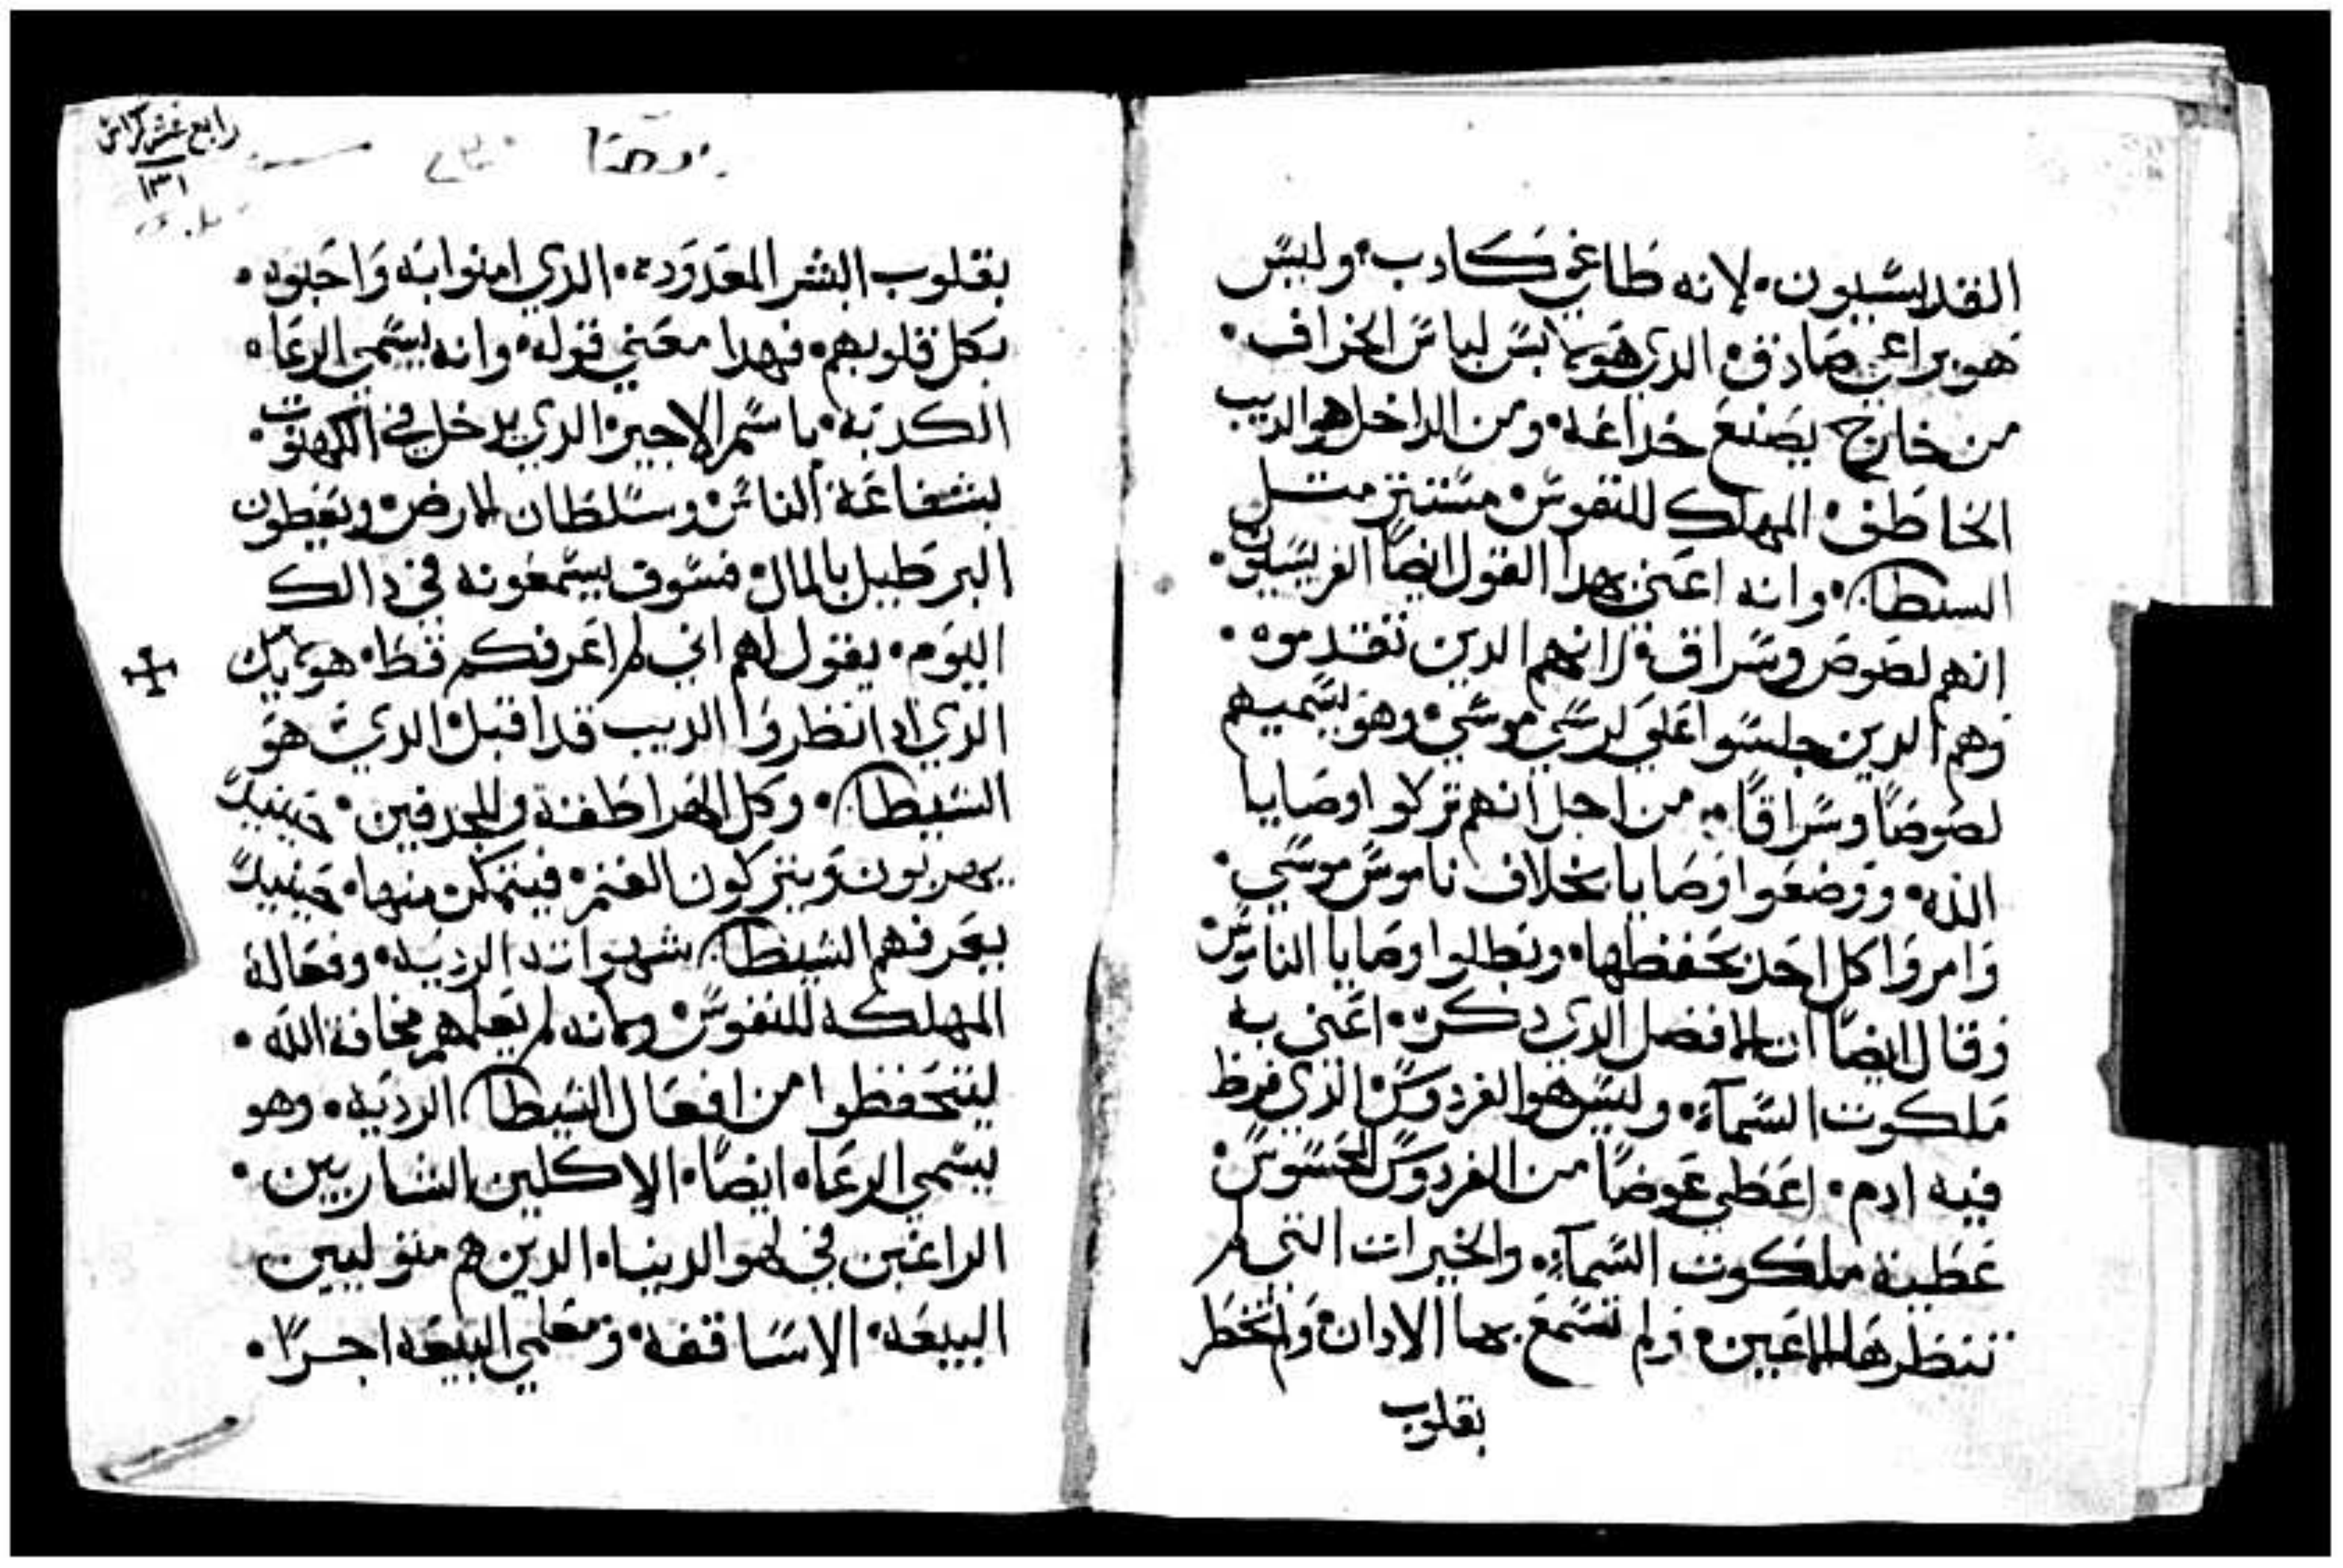 القديسيون. لانه طاغي كادب. وليس
هو براعي صادق. الدي هو يلبس لباس الخراف.
من خارج يصنع خداعة. ومن الداخل هو الديب
الخاطف. المهلك للنفوس. مستتر متل
السيطان. وانه اعني بهدا القول ايضًا الفريسيون.
انهم لصوص وسراق. لانهم الدين تقدموه.
وهم الدين جلسوا علي كرسي موسي. وهو يسميهم
لصوصًا وسراقًا. من اجل انهم تركوا وصايا
الله. ووضعوا وصايا بخلاف ناموس موسي.
وامروا كل احد بحفظها. وبطلوا وصايا الناموس
وقال ايضًا ان الافضل الدي دكره. اعني به
ملكوت السمآء. وليس هو الفردوس. الدي فرط
فيه ادم. اعطي عوضًا من الفردوس المحسوس.
عطية ملكوت السمآء. والخيرات التي لم
تنظرها الاعين. ولم تسمع بها الادان. ولم تخطر
بقلوب
رابع عشر كراس
١٣١
بقلوب البشر المعدوده. الدي امنوا به واحبوه.
بكل قلوبهم. فهدا معني قوله. وانه يسمي الرعاه
الكدبه. باسم الاجير. الدي يدخل في الكهنوت.
بشفاعة الناس. وسلطان الارض. ويعطون
البرطيل بالمال. فسوف يسمعونه في دالك
اليوم. يقول لهم اني لم اعرفكم قط. هولايك
الدي ادا نظروا الديب قد اقبل. الدي هو
الشيطان. وكل الهراطقة والمجدفين. حينيدً
يهربون ويتركون الغنم. فيتمكن منها. حينيدً
يعرفهم الشيطان شهواته الرديه. وفعاله
المهلكه للنفوس. ولانه لم يعلمهم مخافة الله.
ليتحفظوا من افعال الشيطان الرديه. وهو
يسمي الرعاه ايضًا. الاكلين الشاربين.
الراغبين في لهو الدنيا. الدين هم متوليين
البيعه. الاساقفه. ومعلمي البيعه اجرًا.